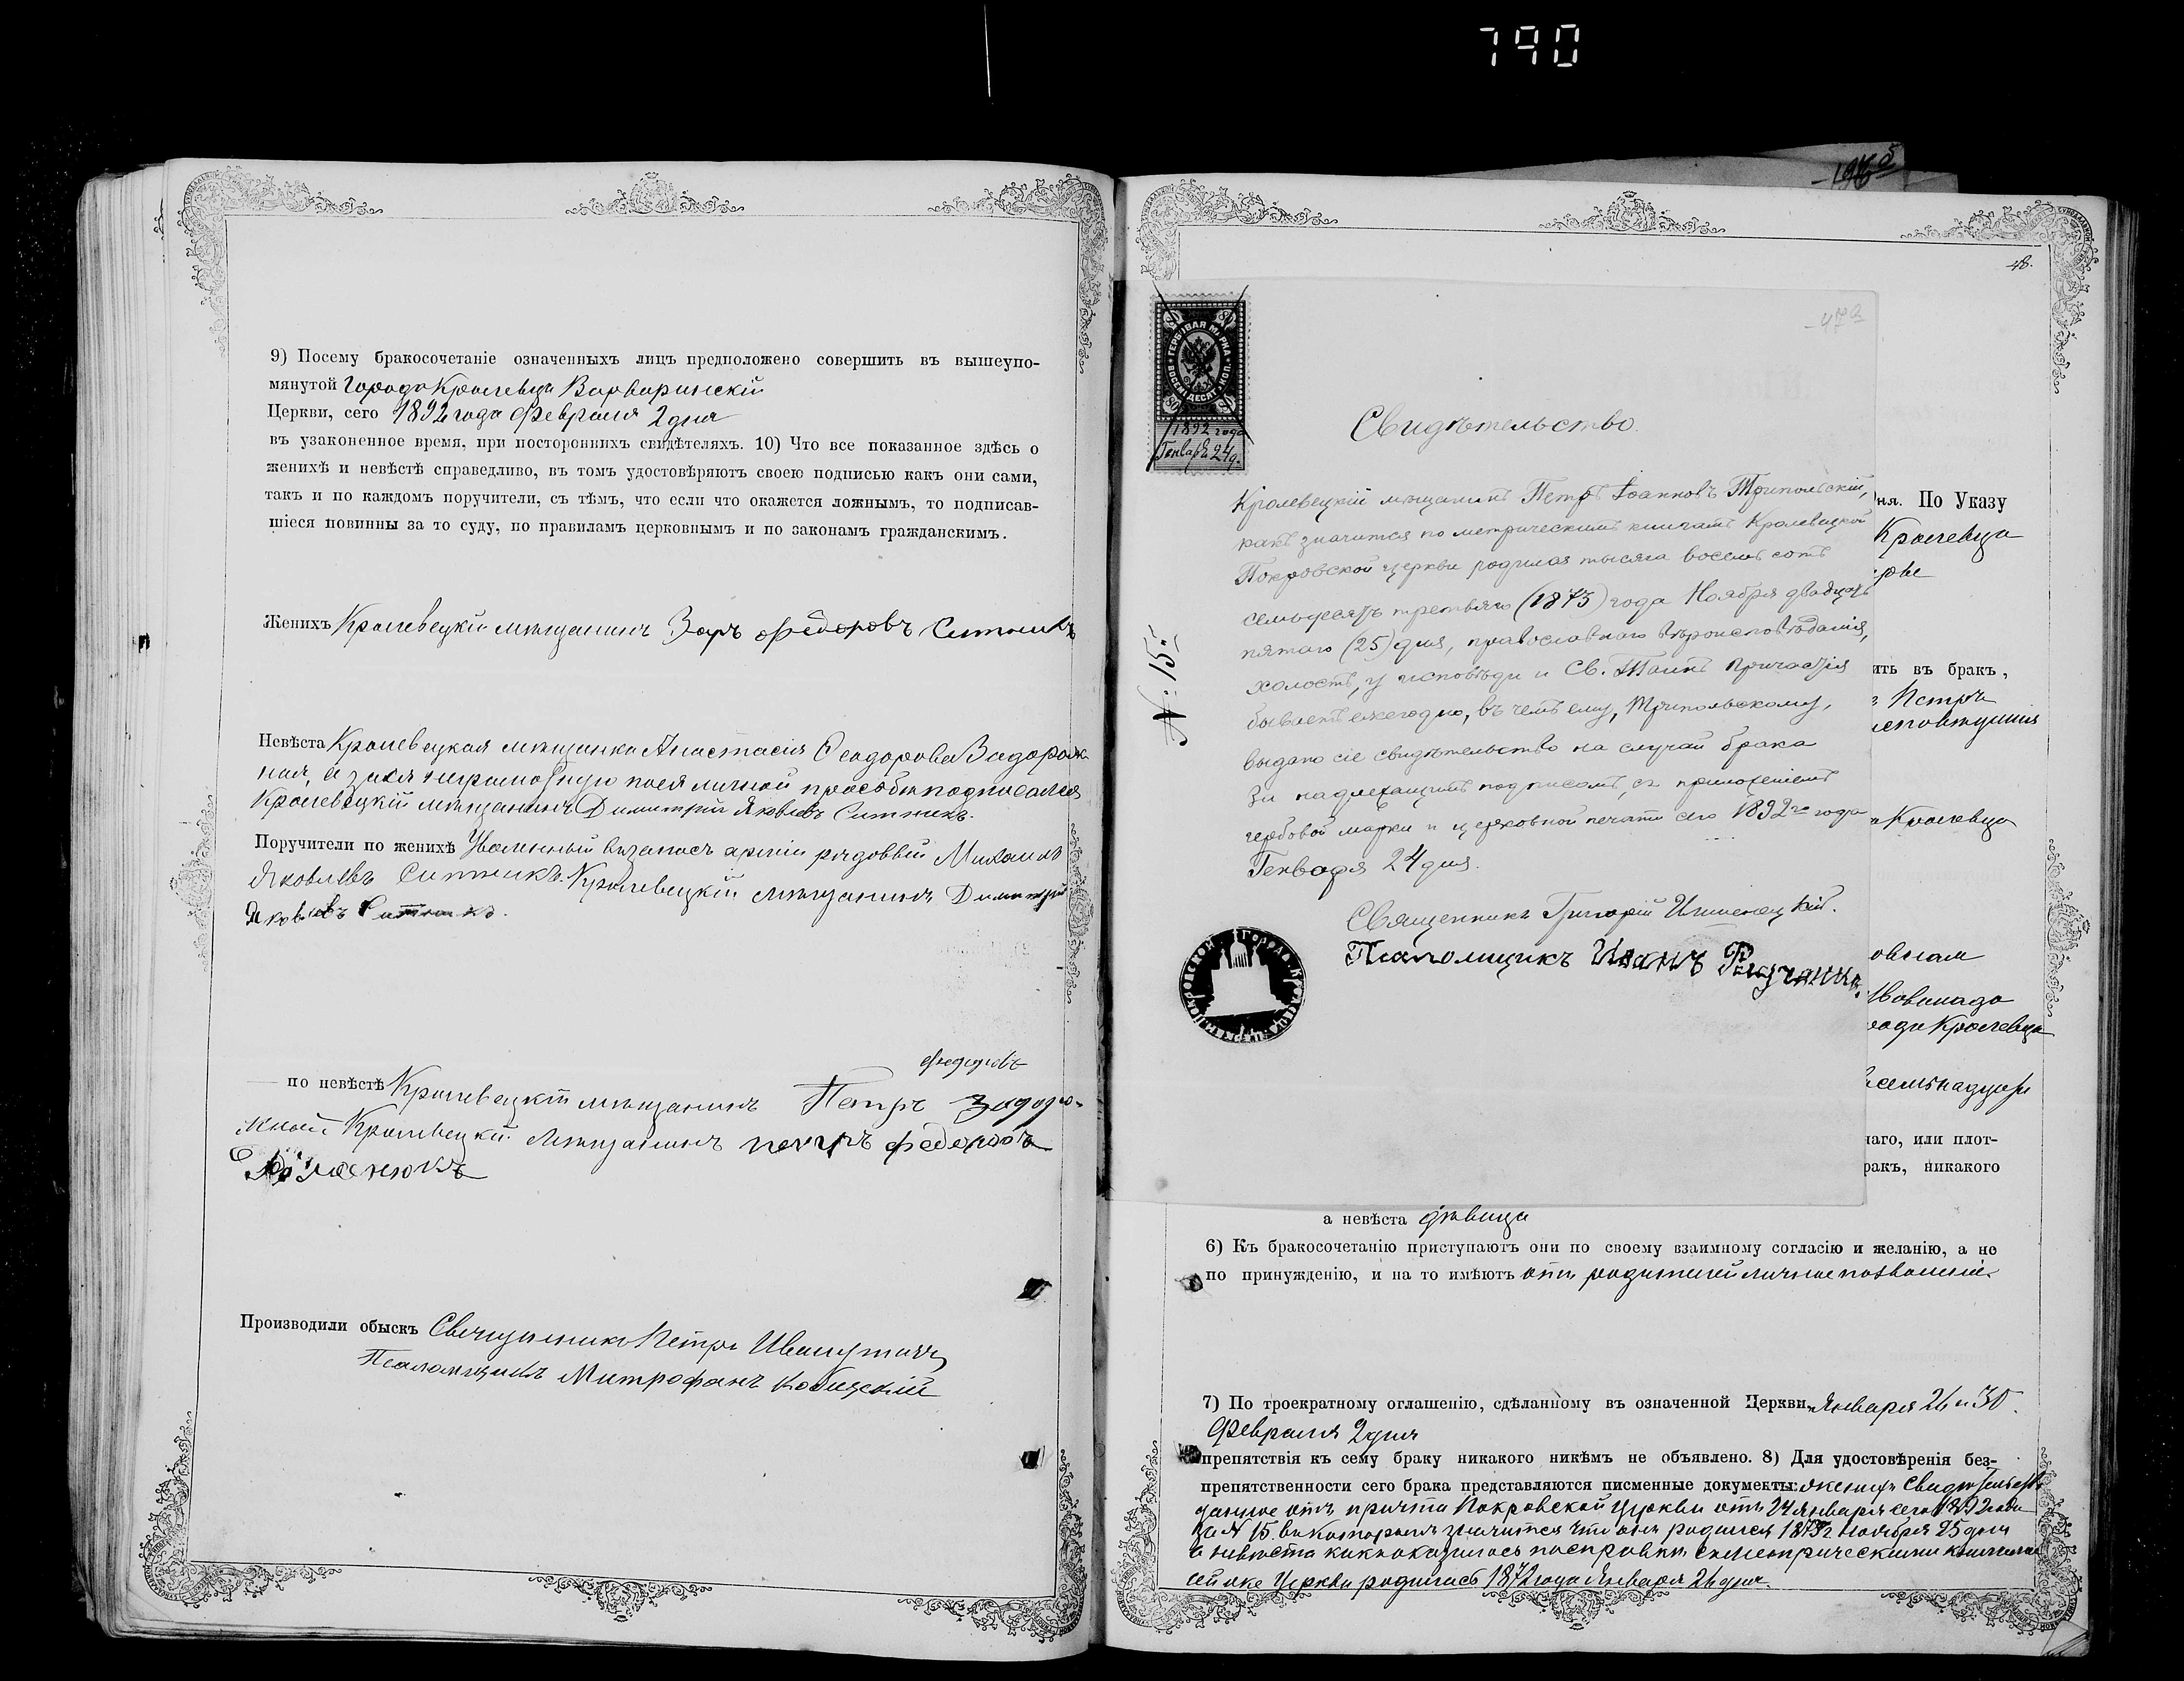 790
9) Посему бракосочетаніе означенныхъ лицъ предположено совершить въ вышеупо-
мянутой Города Кролевца Варваринскій
Церкви, сего 1892 года Февраля 2 дня
въ узаконенное время, при постороннихъ свидѣтеляхъ. 10) Что все показанное здѣсь о
женихѣ и невѣстѣ справедливо, въ томъ удостовѣряютъ своею подписью какъ они сами,
такъ и по каждомъ поручители, съ тѣмъ, что если что окажется ложнымъ, то подписав-
шіеся повинны за то суду, по правиламъ церковнымъ и по законамъ гражданскимъ.
Женихъ Кролевецкій мѣщанинъ Федоровъ Ситникъ
Невѣста Кролевецкая мѣщанка Анастасія Ѳеодорова Задорож-
ная, а за нея неграмотную по ея личной прозьбѣ подписался
Кролевецкій мѣщанинъ Димитрій Яковлевъ Ситникъ.
Поручители по женихѣ Уволенный въ запасъ арміи рядовый Михаилъ
Яковлевъ Ситникъ. Кролевецкій мѣщанинъ Димитрій
Яковлевъ Ситникъ.
федоровъ
по невѣстѣ Кролевецкій мѣщанинъ Петръ Задорож-
ный Кролевецкій мѣщанинъ петръ федоровъ
Производили обыскъ Священникъ Петръ
Псаломщикъ Митрофанъ
48.
47а
ГЕРБОВАЯ МАРКА
ВОСЕМЬДЕСЯТЪ КОП.
80
1892 года
Генваря 24 д.
№: 15.
Свидѣтельство.
Кролевецкій мѣщанинъ Петръ Іоанновъ Трипольскій,
какъ значится по метрическимъ книгамъ Кролевецкой
Покровской церкви родился тысяча восемь сотъ
семьдесятъ третьяго (1873) года Ноября двадцать
пятаго (25) дня, православнаго вѣроисповѣданія,
холостъ, у исповѣди и Св. Таинъ Причастія
бываетъ ежегодно, въ чемъ ему, Трипольскому,
выдано сіе свидѣтельство на случай брака
за надлежащимъ подписомъ, съ приложеніемъ
гербовой марки и церковной печати сего 1892го года
Генваря 24 дня.
Священникъ Григорій
Псаломщикъ Иванъ
ня. По Указу
Кролевца
ить въ бракъ,
Петръ
Кролевца
Кролевца
наго, или плот-
ракъ, никакого
а невѣста дѣвица
6) Къ бракосочетанію приступаютъ они по своему взаимному согласію и желанію, а не
по принужденію, и на то имѣютъ отъ родителей личное позволеніе
7) По троекратному оглашенію, сдѣланному въ означенной Церкви, Января 26 и 30
Февраля 2 дня
препятствія къ сему браку никакого никѣмъ не объявлено. 8) Для удостовѣренія без-
препятственности сего брака представляются писменные документы: женихъ Свидѣтельство
данное отъ причта Покровской церкви отъ 24 Января сего 1892 года
за № 15 въ которомъ значится что онъ родился 1873 г. ноября 25 дня
а невѣста какъ оказалось по справкѣ съ метрическими книгами
сей же Церкви родилась 1872 года Января 26 дня.